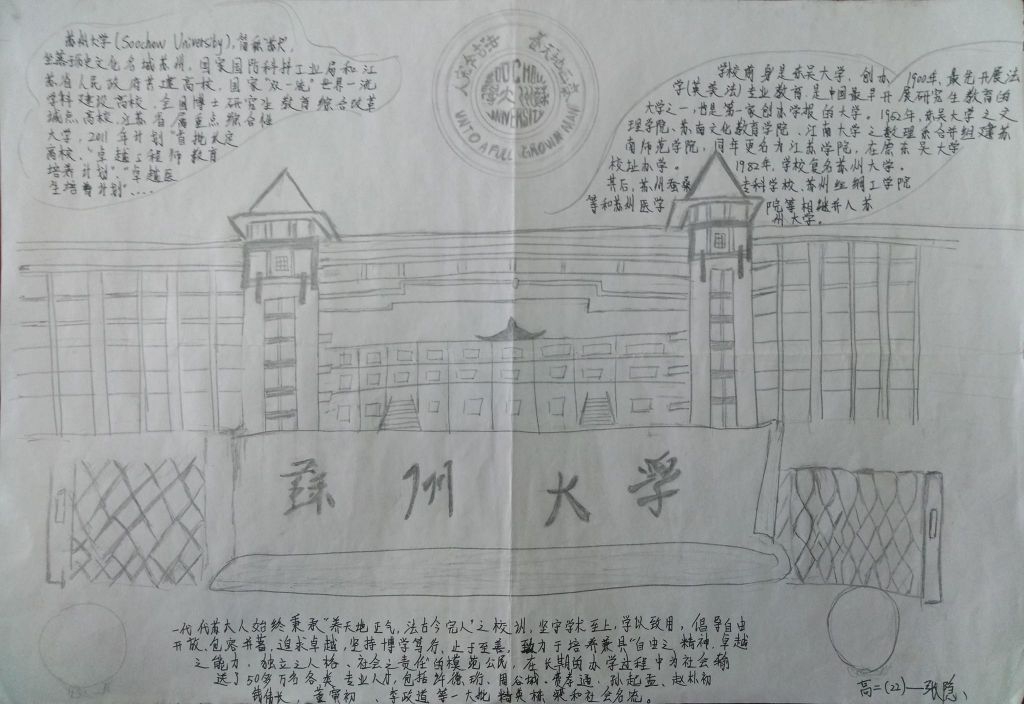 苏州大学(Soochow University),简称"苏大",
坐落于历史文化名城苏州,国家国防科技工业局和江
苏省人民政府共建高校,国家"双一流"世界一流
学科建设高校,全国博士研究生教育综合改革
试点高校,江苏省属重点综合性
大学,2011年计划"首批认定
高校、卓越工程师教育
培养计划","卓越医
生培养计划"....
养天地正气 法古今完人
SOOCHOW UNIVERSITY
UNTO A FULL GROWN MAN
学校前身是东吴大学,创办1900年,最先开展法
学(英美法)专业教育,是中国最早开展研究生教育的
大学之一,也是第一家创办学报的大学。1952年,东吴大学之文
理学院、苏南文化教育学院、江南大学之数理系合并组建苏
南师范学院,同年更名为江苏学院,在原东吴大学
校址办学。1982年,学校复名苏州大学。
其后,苏州蚕桑专科学校、苏州丝绸工学院
等和苏州医学院等相继并入苏
州大学。
蘇州大學
一代代苏大人始终秉承"养天地正气,法古今完人"之校训,坚守学术至上,学以致用,倡导自由
开放、包容并蓄、追求卓越,坚持博学笃行、止于至善,致力于培养兼具"自由之精神、卓越
之能力、独立之人格、社会之责任"的模范公民,在长期的办学过程中为社会输
送了50多万名各类专业人才,包括许德珩、周谷城、费孝通、孙起孟、赵朴初
钱伟长、董寅初、李政道等一大批精英栋梁和社会名流。
高二(22)—张隐、